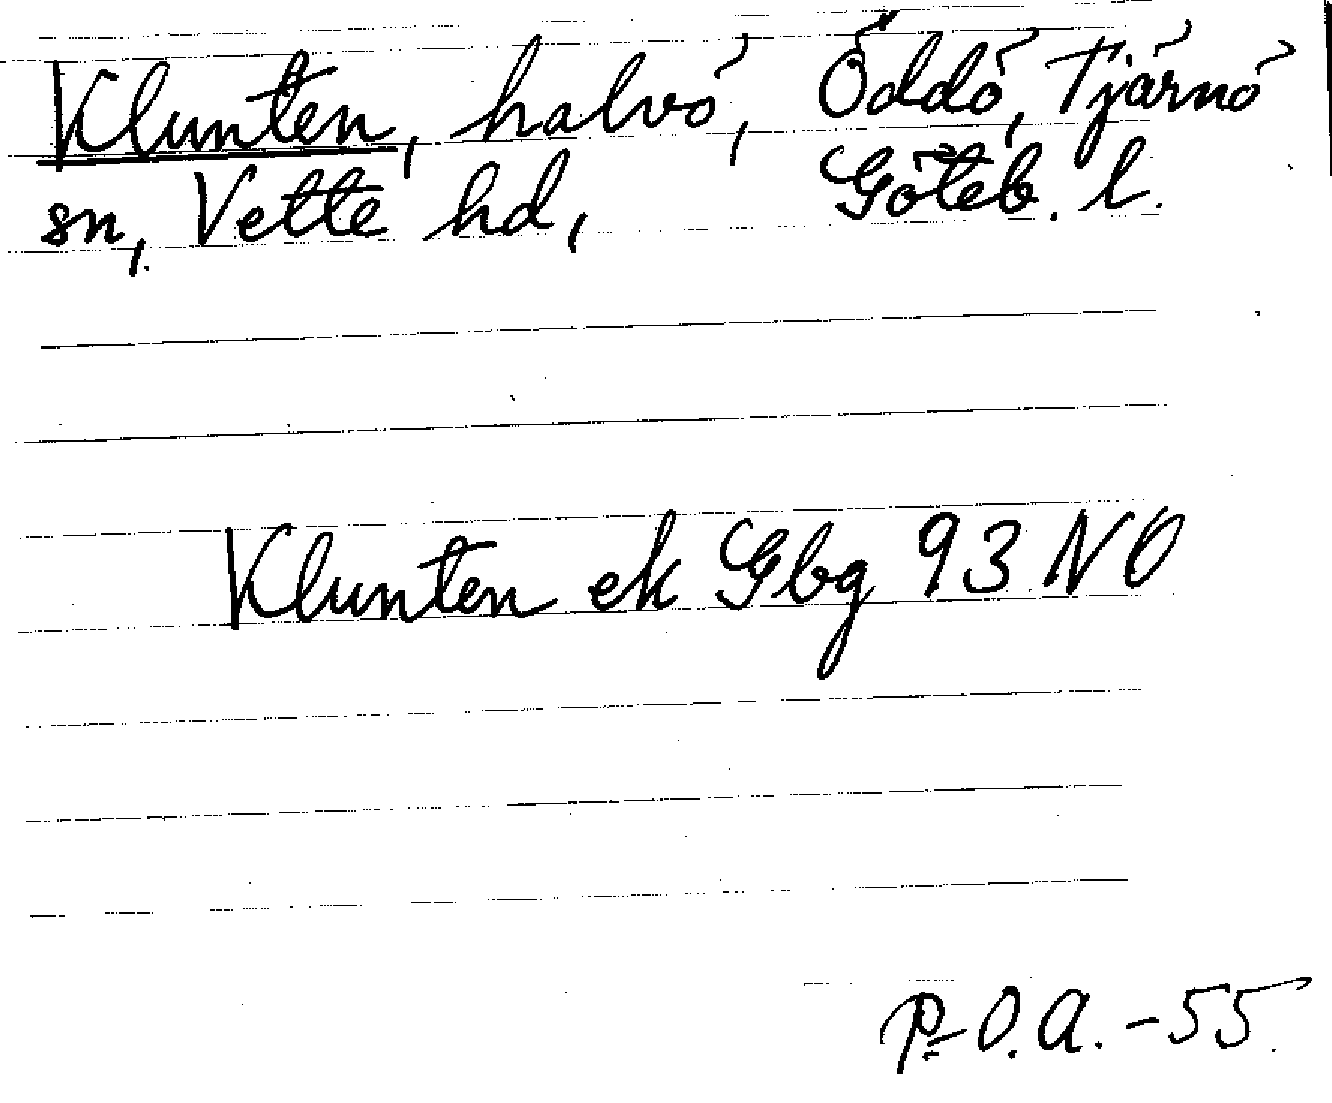 Klunten, halvö, Öddö, Tjärnö
sn, Vette hd, Göteb. l.
Klunten ek Gbg 93 NO
P.O.A. -55.